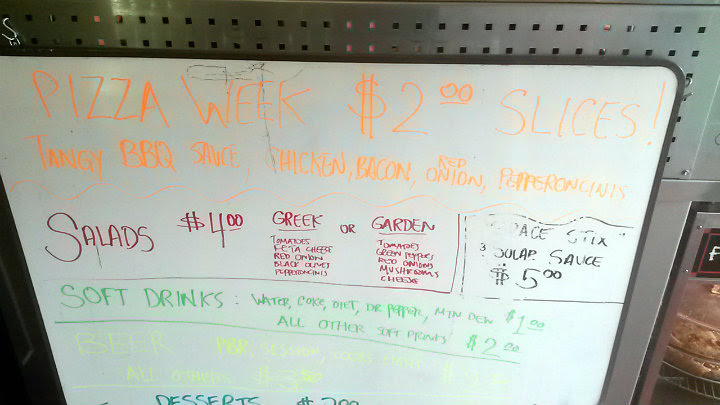 PIZZA WEEK $2.00 SLICES!
TANGY BBQ SAUCE, CHICKEN, BACON, RED ONION, PEPPERONCINIS
SALADS $4.00
GREEK
TOMATOES
FETA CHEESE
RED ONION
BLACK OLIVES
PEPPERONCINIS
OR
GARDEN
TOMATOES
GREEN PEPPERS
RED ONIONS
MUSHROOMS
CHEESE
ACE STIX
3 SOLAR SAUCE
$5.00
SOFT DRINKS: WATER, COKE, DIET, DR PEPPER, MTN DEW $1.00
ALL OTHER SOFT DRINKS $2.00
BEER PBR, SESSION,
ALL OTHERS
DESSERTS $2.00
F